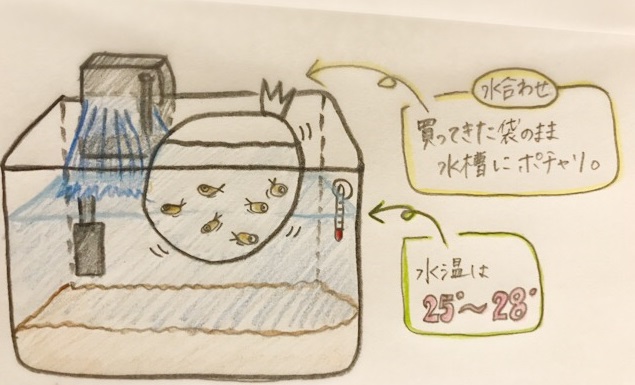 水合わせ
買ってきた袋のまま
水槽にポチャリ。
水温は
25°～28°